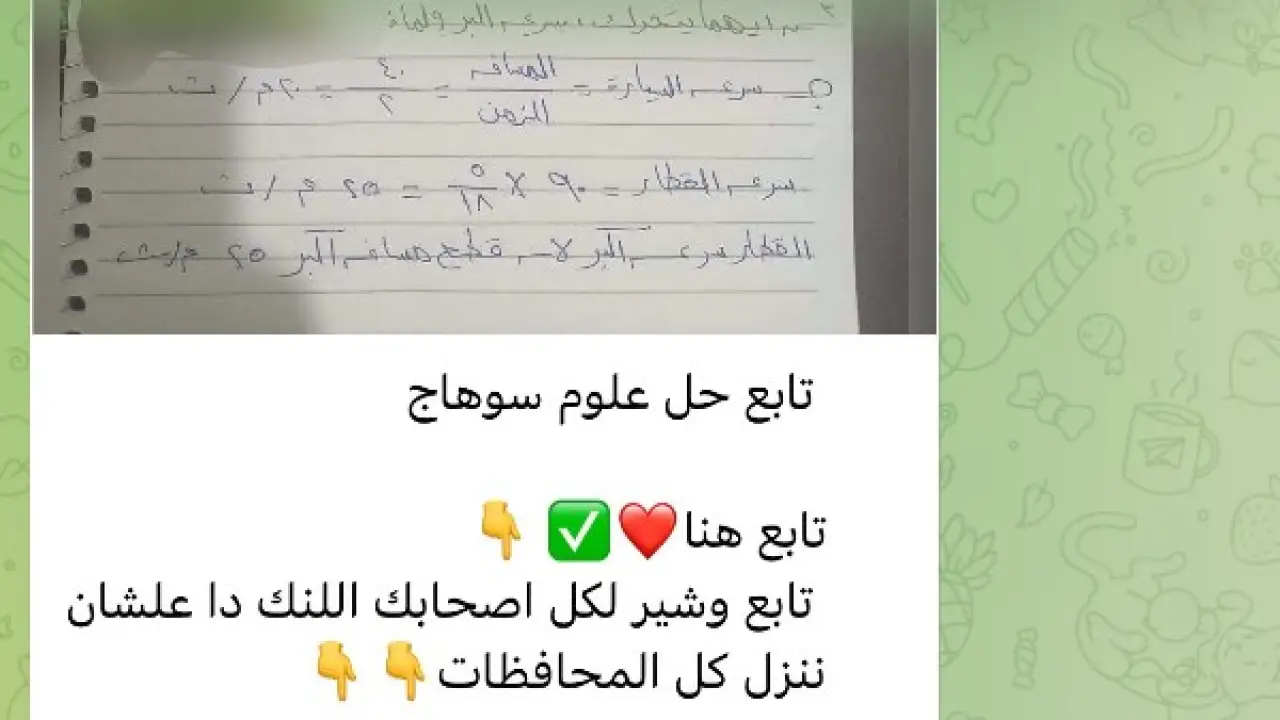 ٣ - ايهما يتحرك بسرعه اكبر ولماذا
ج سرعه السيارة = المسافه / الزمن = ٤٠ / ٢ = ٢٠ م / ث
سرعه القطار = ٩٠ × ٥ / ١٨ = ٢٥ م / ث
القطار سرعه اكبر لانه قطع مسافه اكبر ٢٥ م/ث
تابع حل علوم سوهاج
تابع هنا❤️✅ 👇
تابع وشير لكل اصحابك اللنك دا علشان
ننزل كل المحافظات👇👇